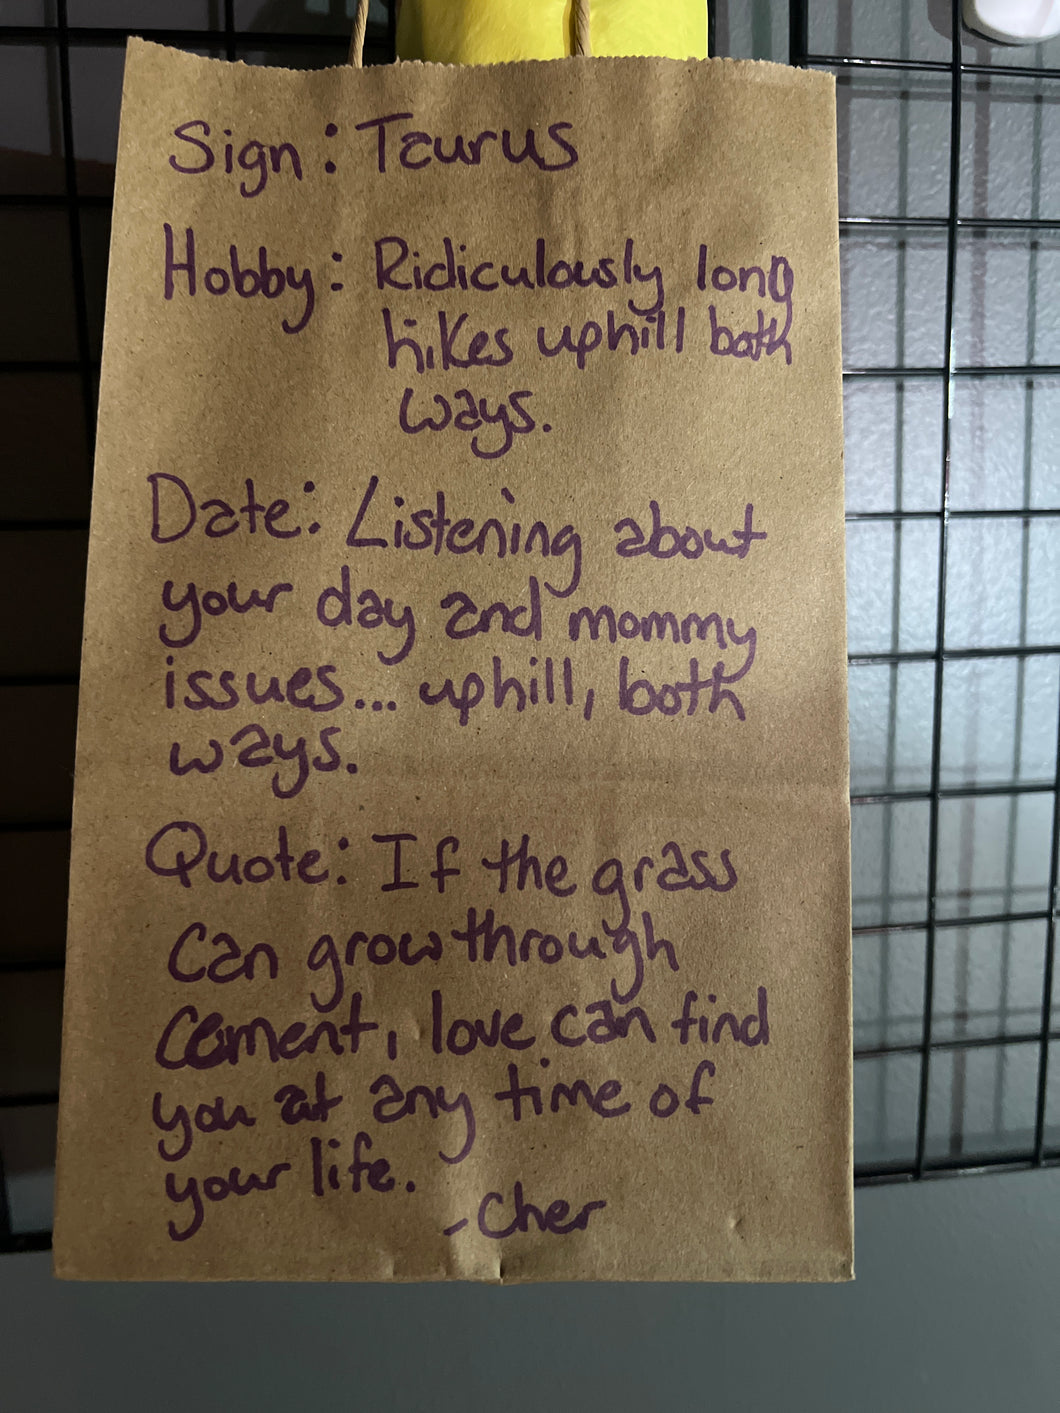 Sign: Taurus
Hobby: Ridiculously long
hikes uphill both
ways.
Date: Listening about
your day and mommy
issues... uphill, both
ways.
Quote: If the grass
can grow through
cement, love can find
you at any time of
your life.
-Cher